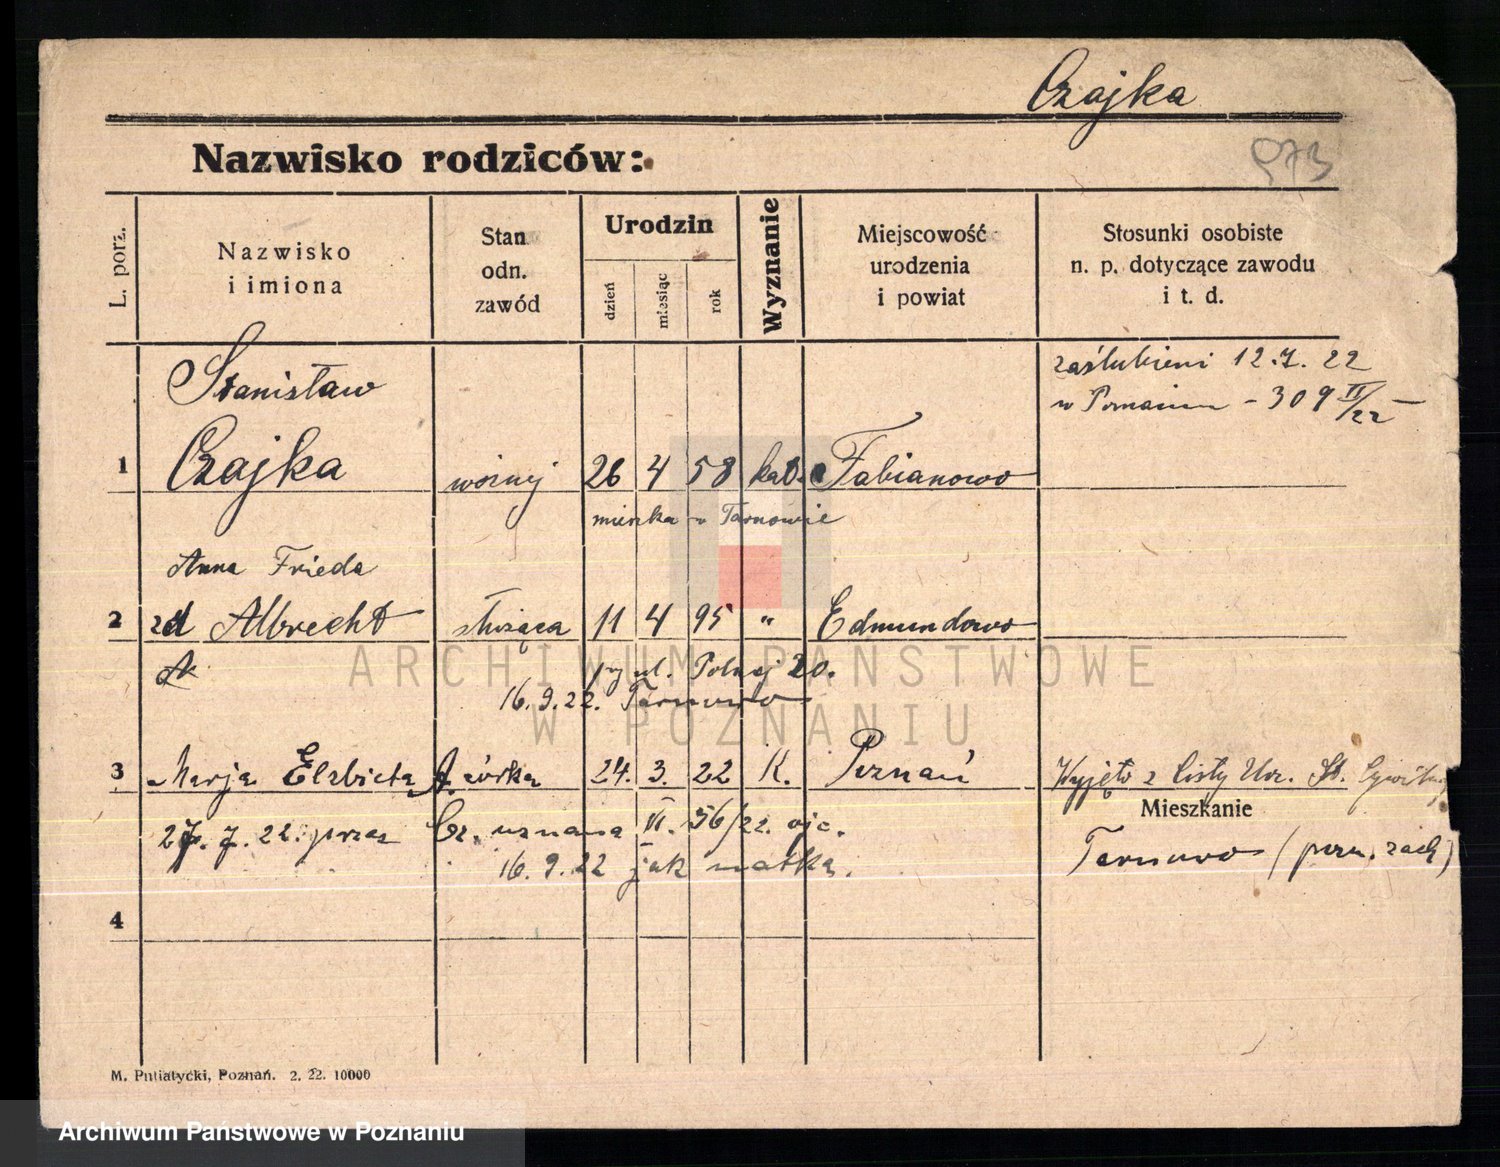 Czajka
Nazwisko rodziców:
973
L. porz.
Nazwisko
i imiona
Stan
odn.
zawód
Urodzin
dzień
miesiąc
rok
Wyznanie
Miejscowość
urodzenia
i powiat
Stosunki osobiste
n. p. dotyczące zawodu
i t. d.
zaślubieni 12.7.22
w Poznaniu - 309 II/22 -
Stanisław
1 Czajka woźny 26 4 58 kat. Fabianowo
mieszka w Tarnowie
Anna Frieda
2 zd Albrecht służąca 11 4 95 " Edmundowo
ul. Polnej 20.
16.9.22. Tarnowo
3 Marja Elzbieta A. córka 24. 3. 22 K. Poznań Wyjęto z Listy Urz. St. Cywilneg
27.7.22. przez Cz. uznana VI. 56/22. ojc.
16.9.22 jak matka.
Mieszkanie
Tarnowo (pozn. zach)
4
M. Putiatycki, Poznań. 2. 22. 10000
ARCHIWUM PAŃSTWOWE
W POZNANIU
Archiwum Państwowe w Poznaniu